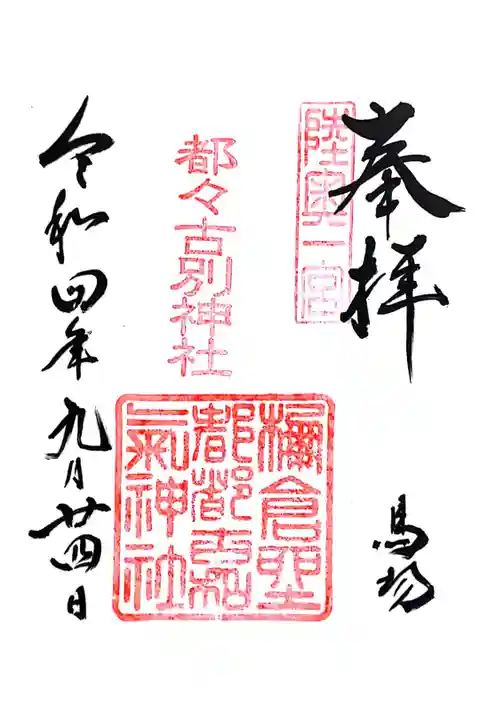 奉拝
陸奥一宮
馬場
都々古別神社
棚倉
都都古和
氣神社
令和四年九月廿四日